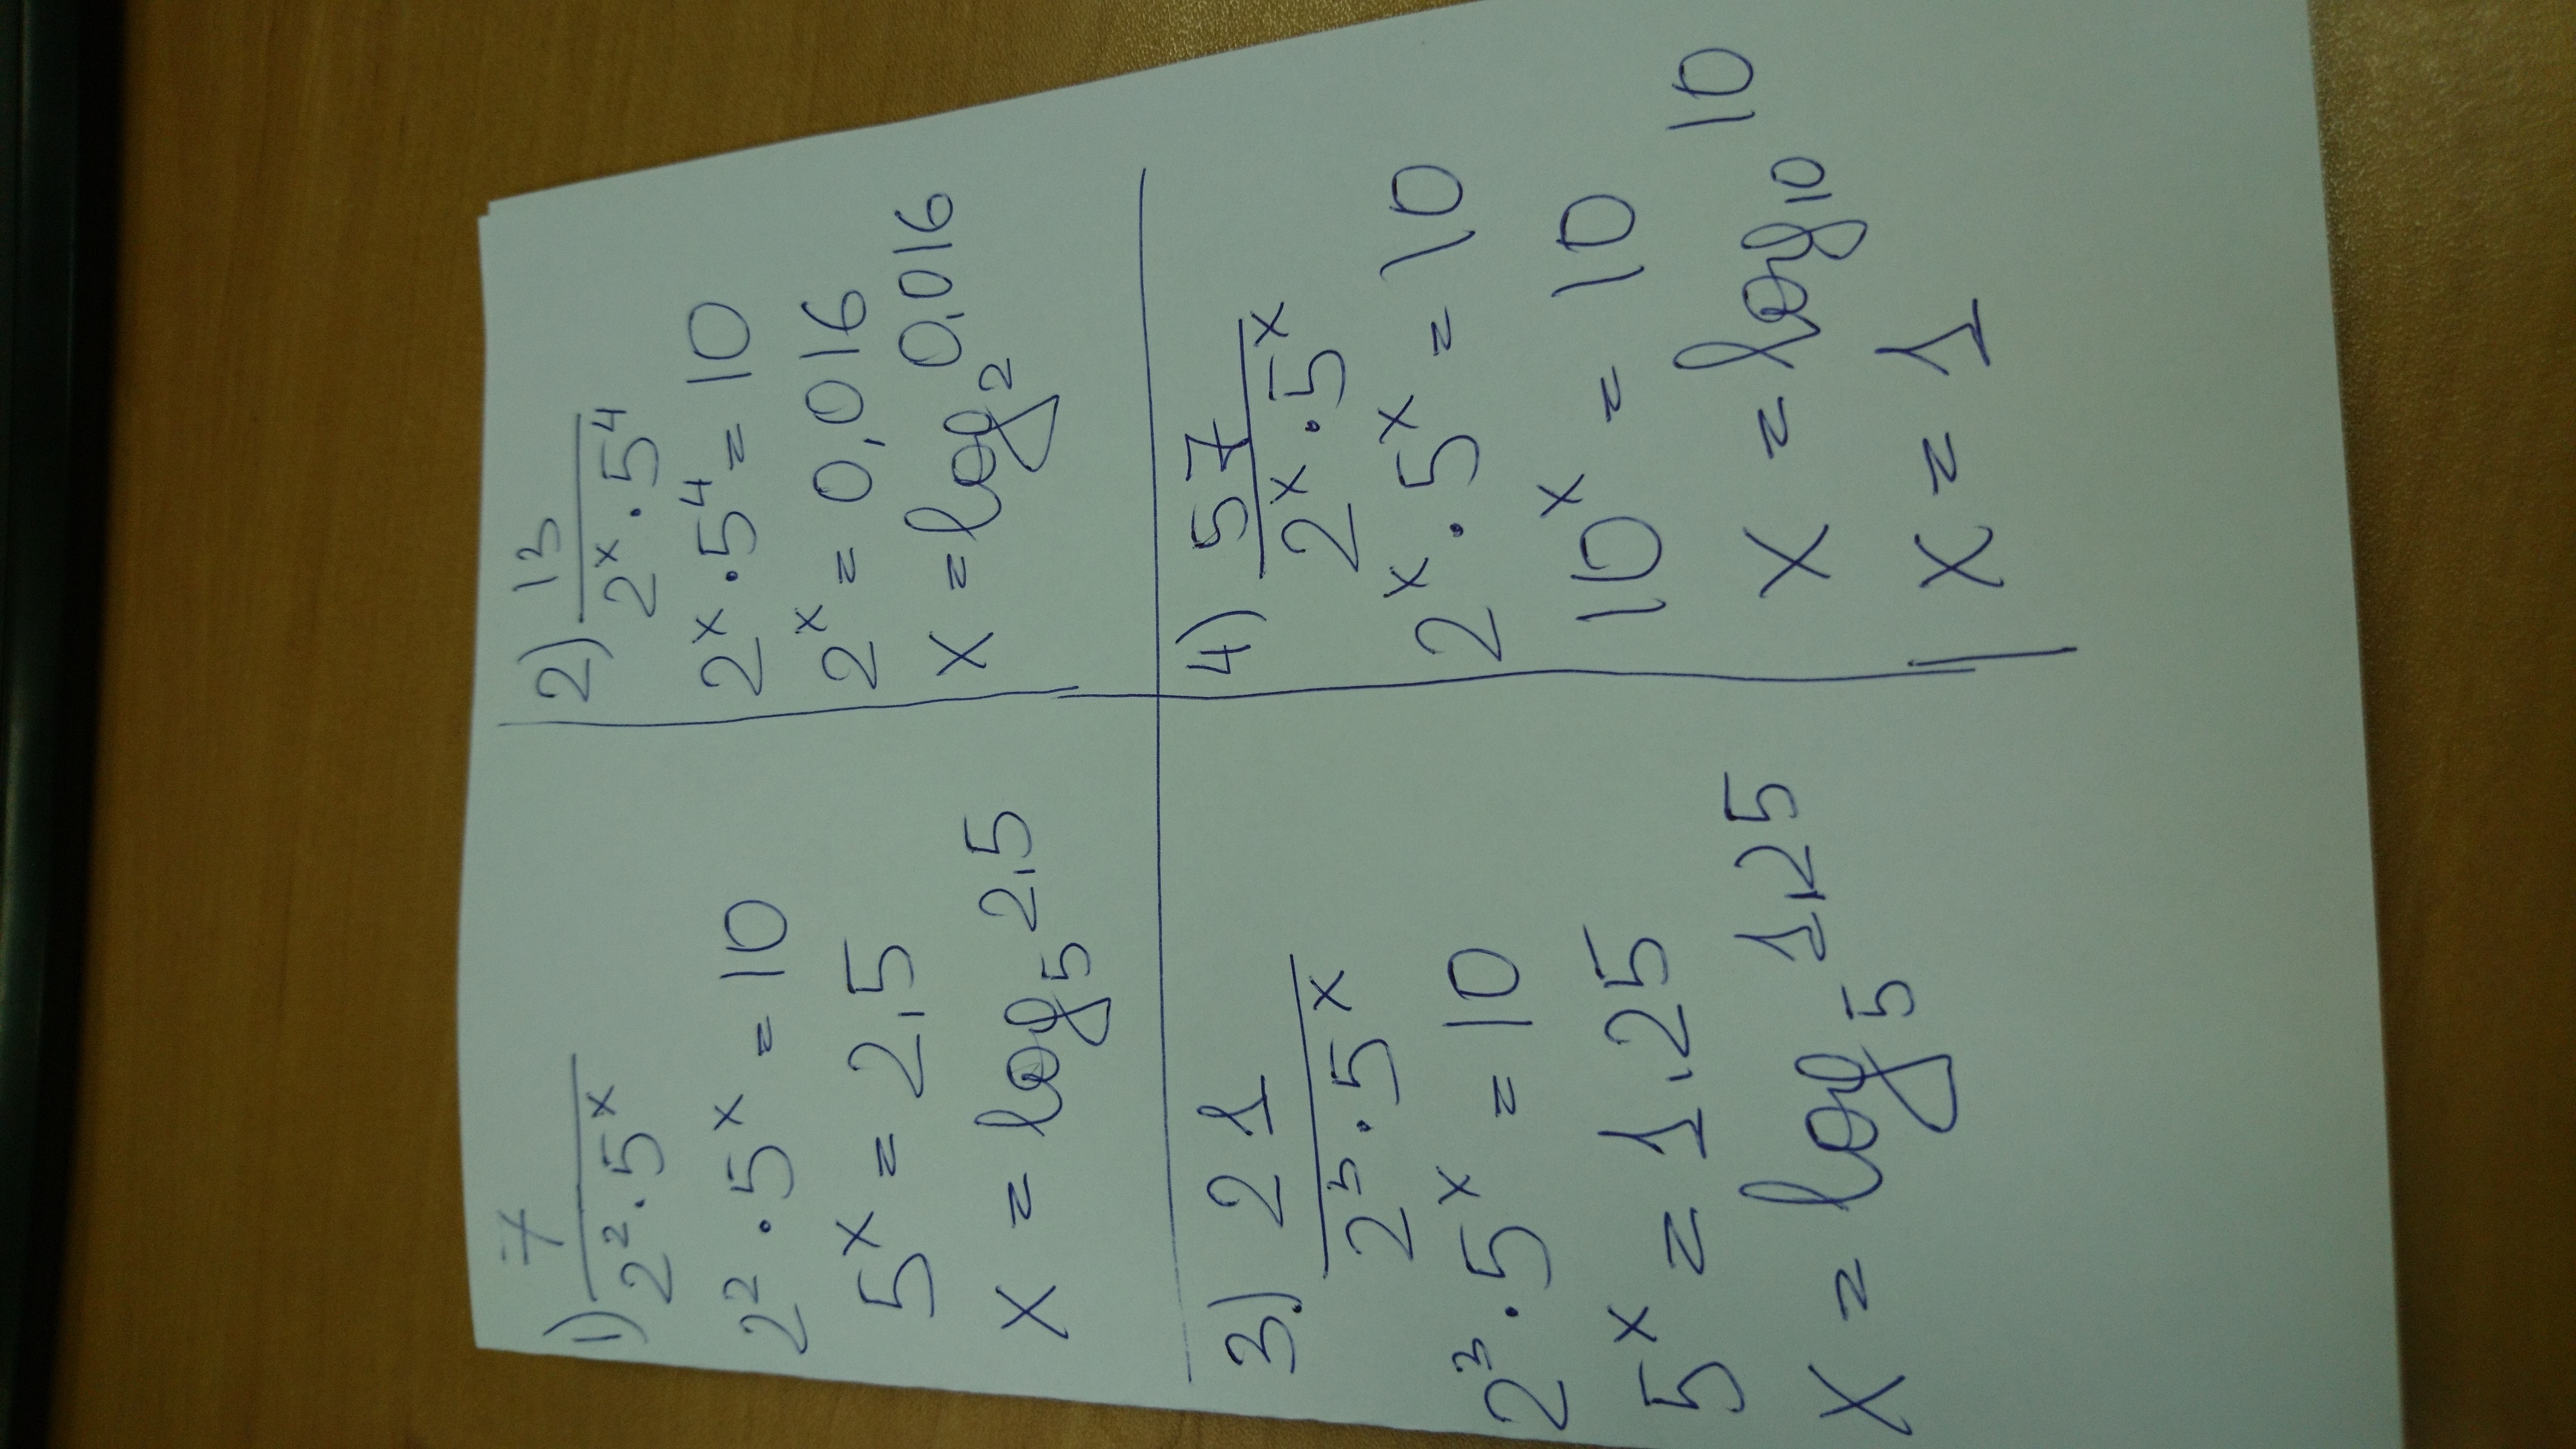 1) 7/(2² · 5ˣ)
2² · 5ˣ = 10
5ˣ = 2,5
x = log₅ 2,5
2) 13/(2ˣ · 5⁴)
2ˣ · 5⁴ = 10
2ˣ = 0,016
x = log₂ 0,016
3.) 21/(2³ · 5ˣ)
2³ · 5ˣ = 10
5ˣ = 1,25
x = log₅ 1,25
4) 57/(2ˣ · 5ˣ)
2ˣ · 5ˣ = 10
10ˣ = 10
x = log₁₀ 10
x = 1